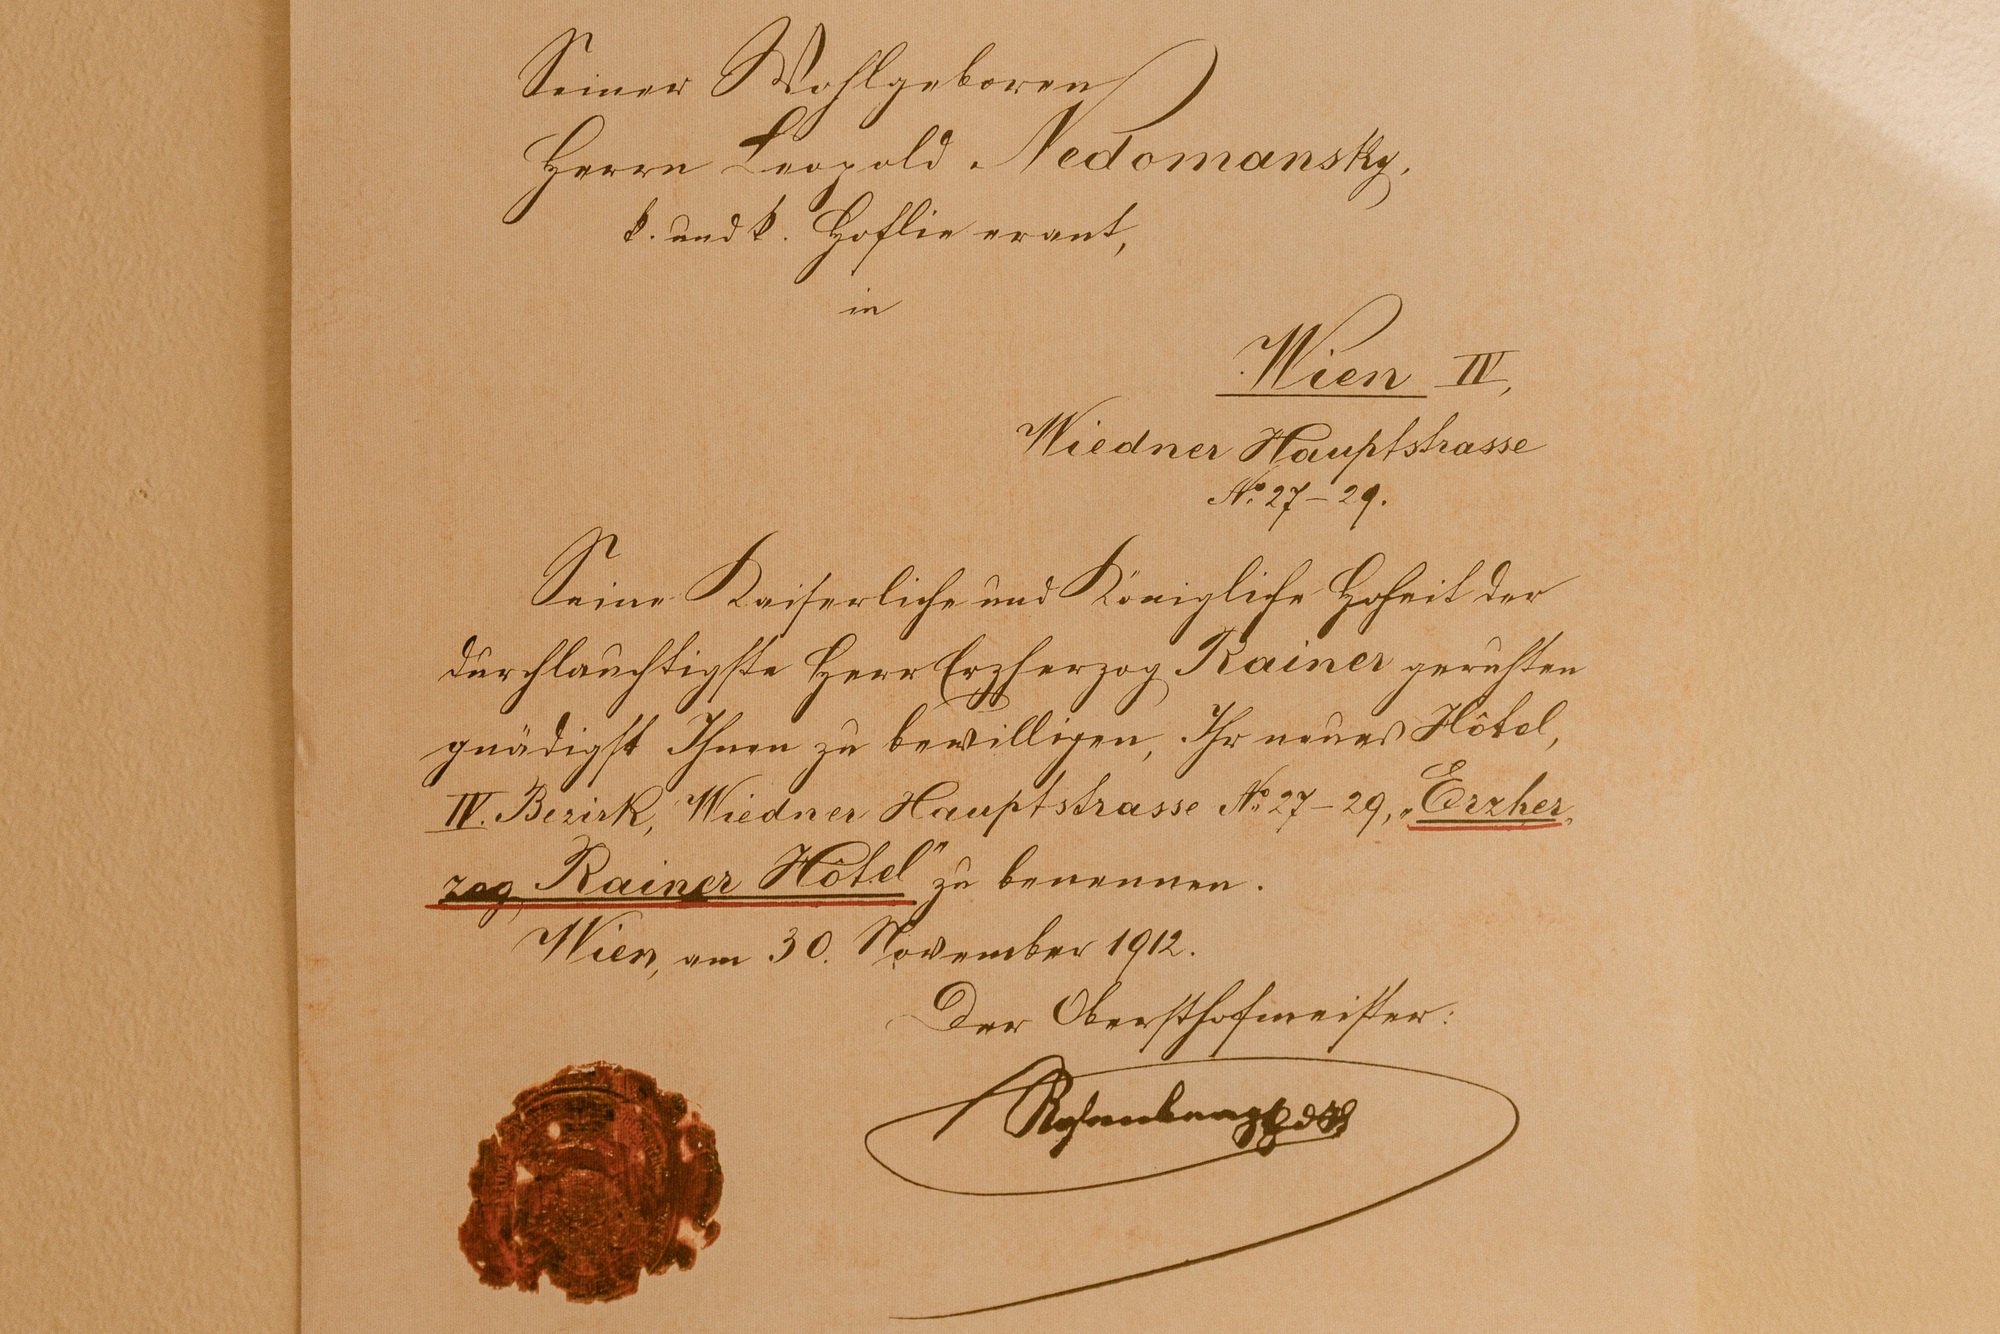 Seiner Wohlgeboren
Herrn Leopold Nedomansky,
k. und k. Hoflieferant,
in
Wien IV,
Wiedner Hauptstrasse
No. 27-29.
Seine Kaiserliche und Königliche Hoheit der
durchlauchtigste Herr Erzherzog Rainer geruhten
gnädigst Ihnen zu bewilligen, Ihr neues Hôtel,
IV. Bezirk, Wiedner Hauptstrasse No. 27-29, „Erzher„
zog Rainer Hôtel" zu benennen.
Wien, am 30. November 1912.
Der Obersthofmeister: